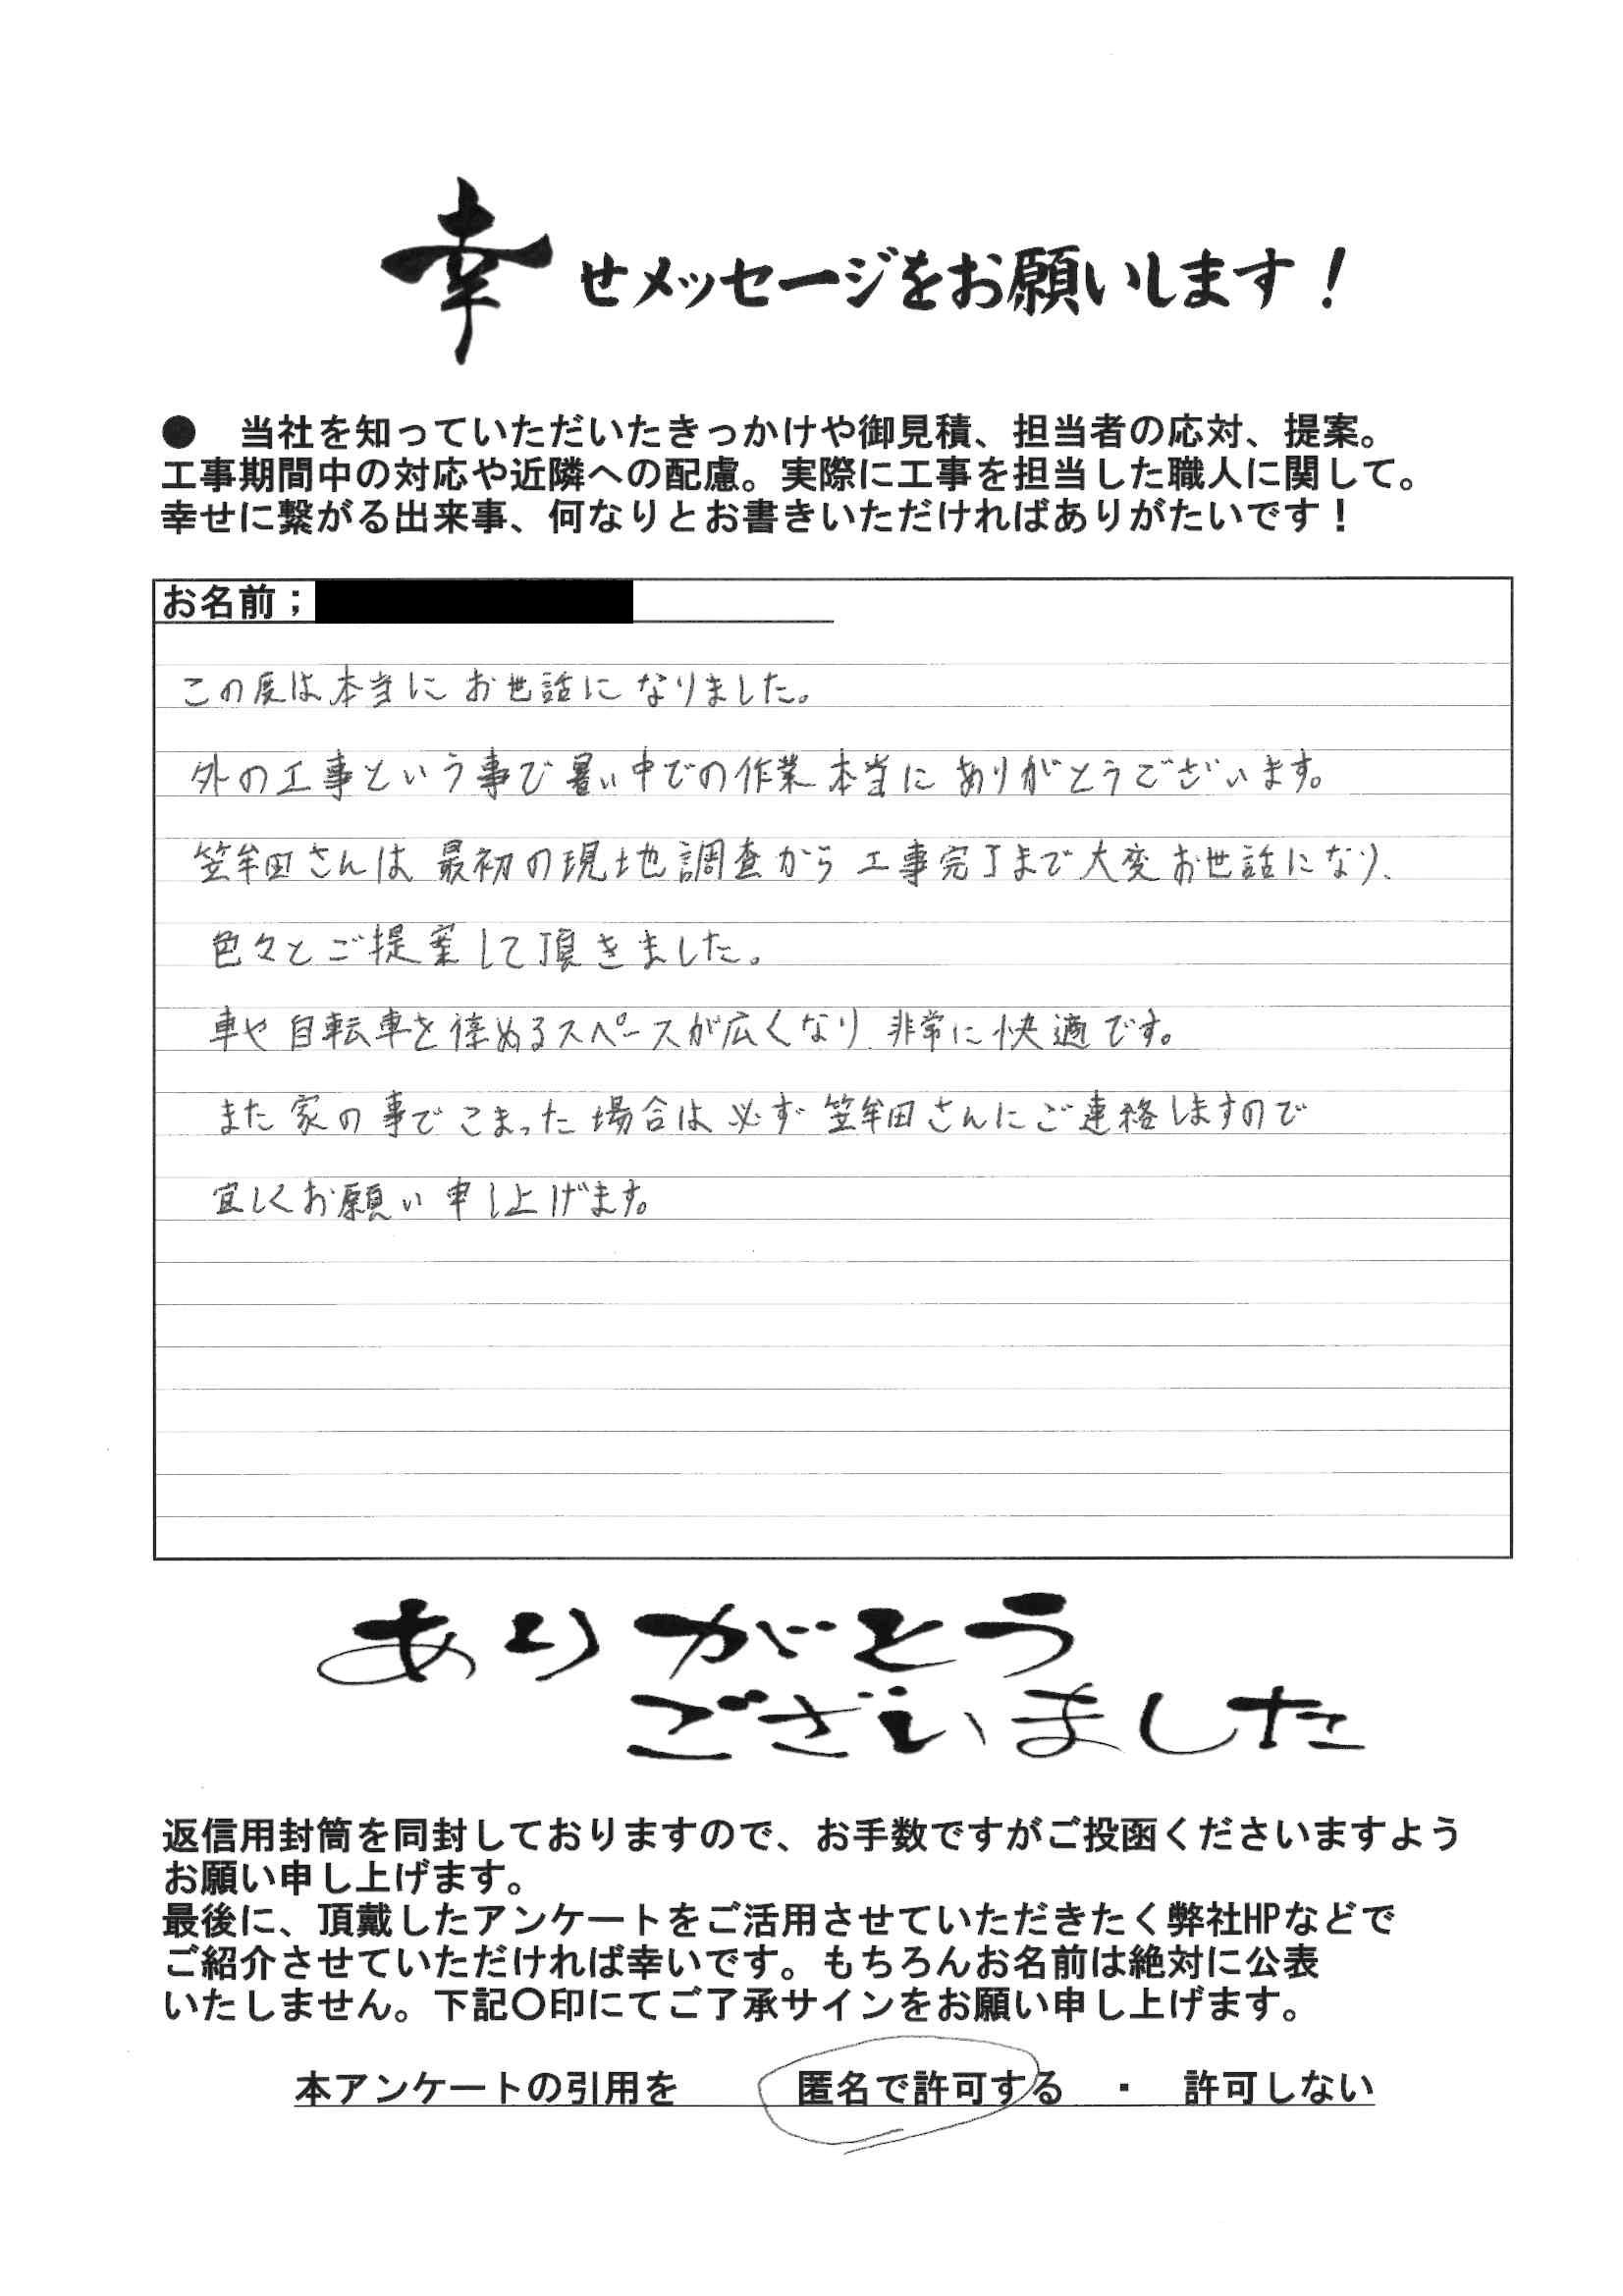 幸せメッセージをお願いします！
● 当社を知っていただいたきっかけや御見積、担当者の応対、提案。
工事期間中の対応や近隣への配慮。実際に工事を担当した職人に関して。
幸せに繋がる出来事、何なりとお書きいただければありがたいです！
お名前；
この度は本当にお世話になりました。
外の工事という事で暑い中での作業本当にありがとうございます。
笠牟田さんは最初の現地調査から工事完了まで大変お世話になり、
色々とご提案して頂きました。
車や自転車を停めるスペースが広くなり、非常に快適です。
また家の事でこまった場合は必ず笠牟田さんにご連絡しますので
宜しくお願い申し上げます。
ありがとう
ございました
返信用封筒を同封しておりますので、お手数ですがご投函くださいますよう
お願い申し上げます。
最後に、頂戴したアンケートをご活用させていただきたく弊社HPなどで
ご紹介させていただければ幸いです。もちろんお名前は絶対に公表
いたしません。下記〇印にてご了承サインをお願い申し上げます。
本アンケートの引用を 匿名で許可する ・ 許可しない